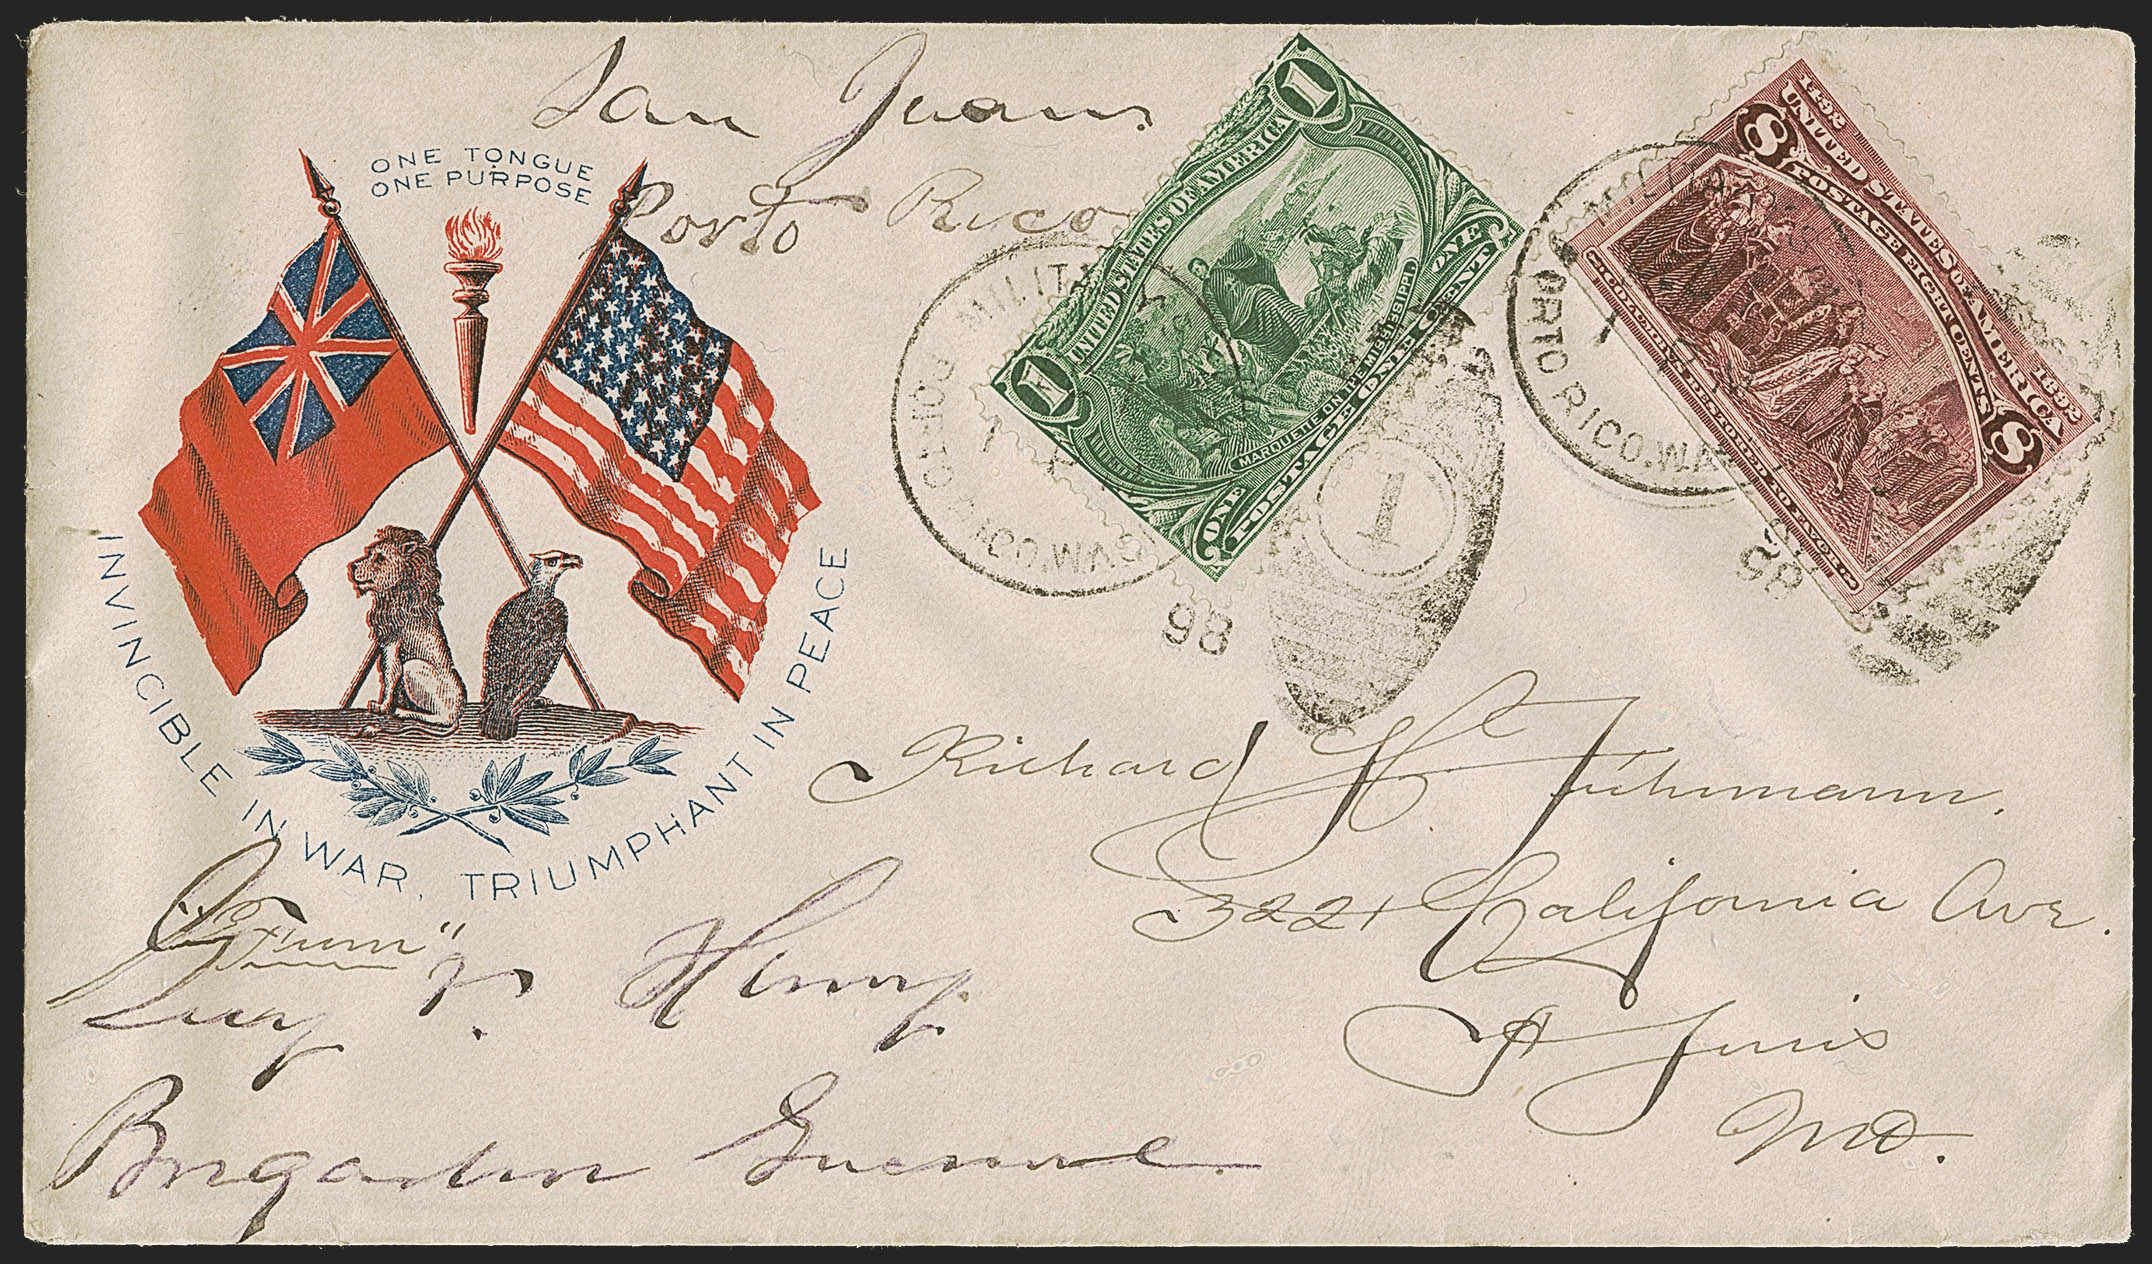 San Juan.
Porto Rico
ONE TONGUE
ONE PURPOSE
INVINCIBLE IN WAR, TRIUMPHANT IN PEACE
1
1
UNITED STATES OF AMERICA
MARQUETTE ON THE MISSISSIPPI.
ONE
ONE CENT
POSTAGE ONE CENT
PORTO RICO. WASH
MILITARY
98
1
1492
1892
8
8
UNITED STATES OF AMERICA
POSTAGE EIGHT CENTS
COLUMBUS RESTORED TO FAVOR
MILITARY
PORTO RICO. WA
98
Richard H.
3221 California Ave.
St Louis
Mo.
Guy V. Henry
Brigadier General